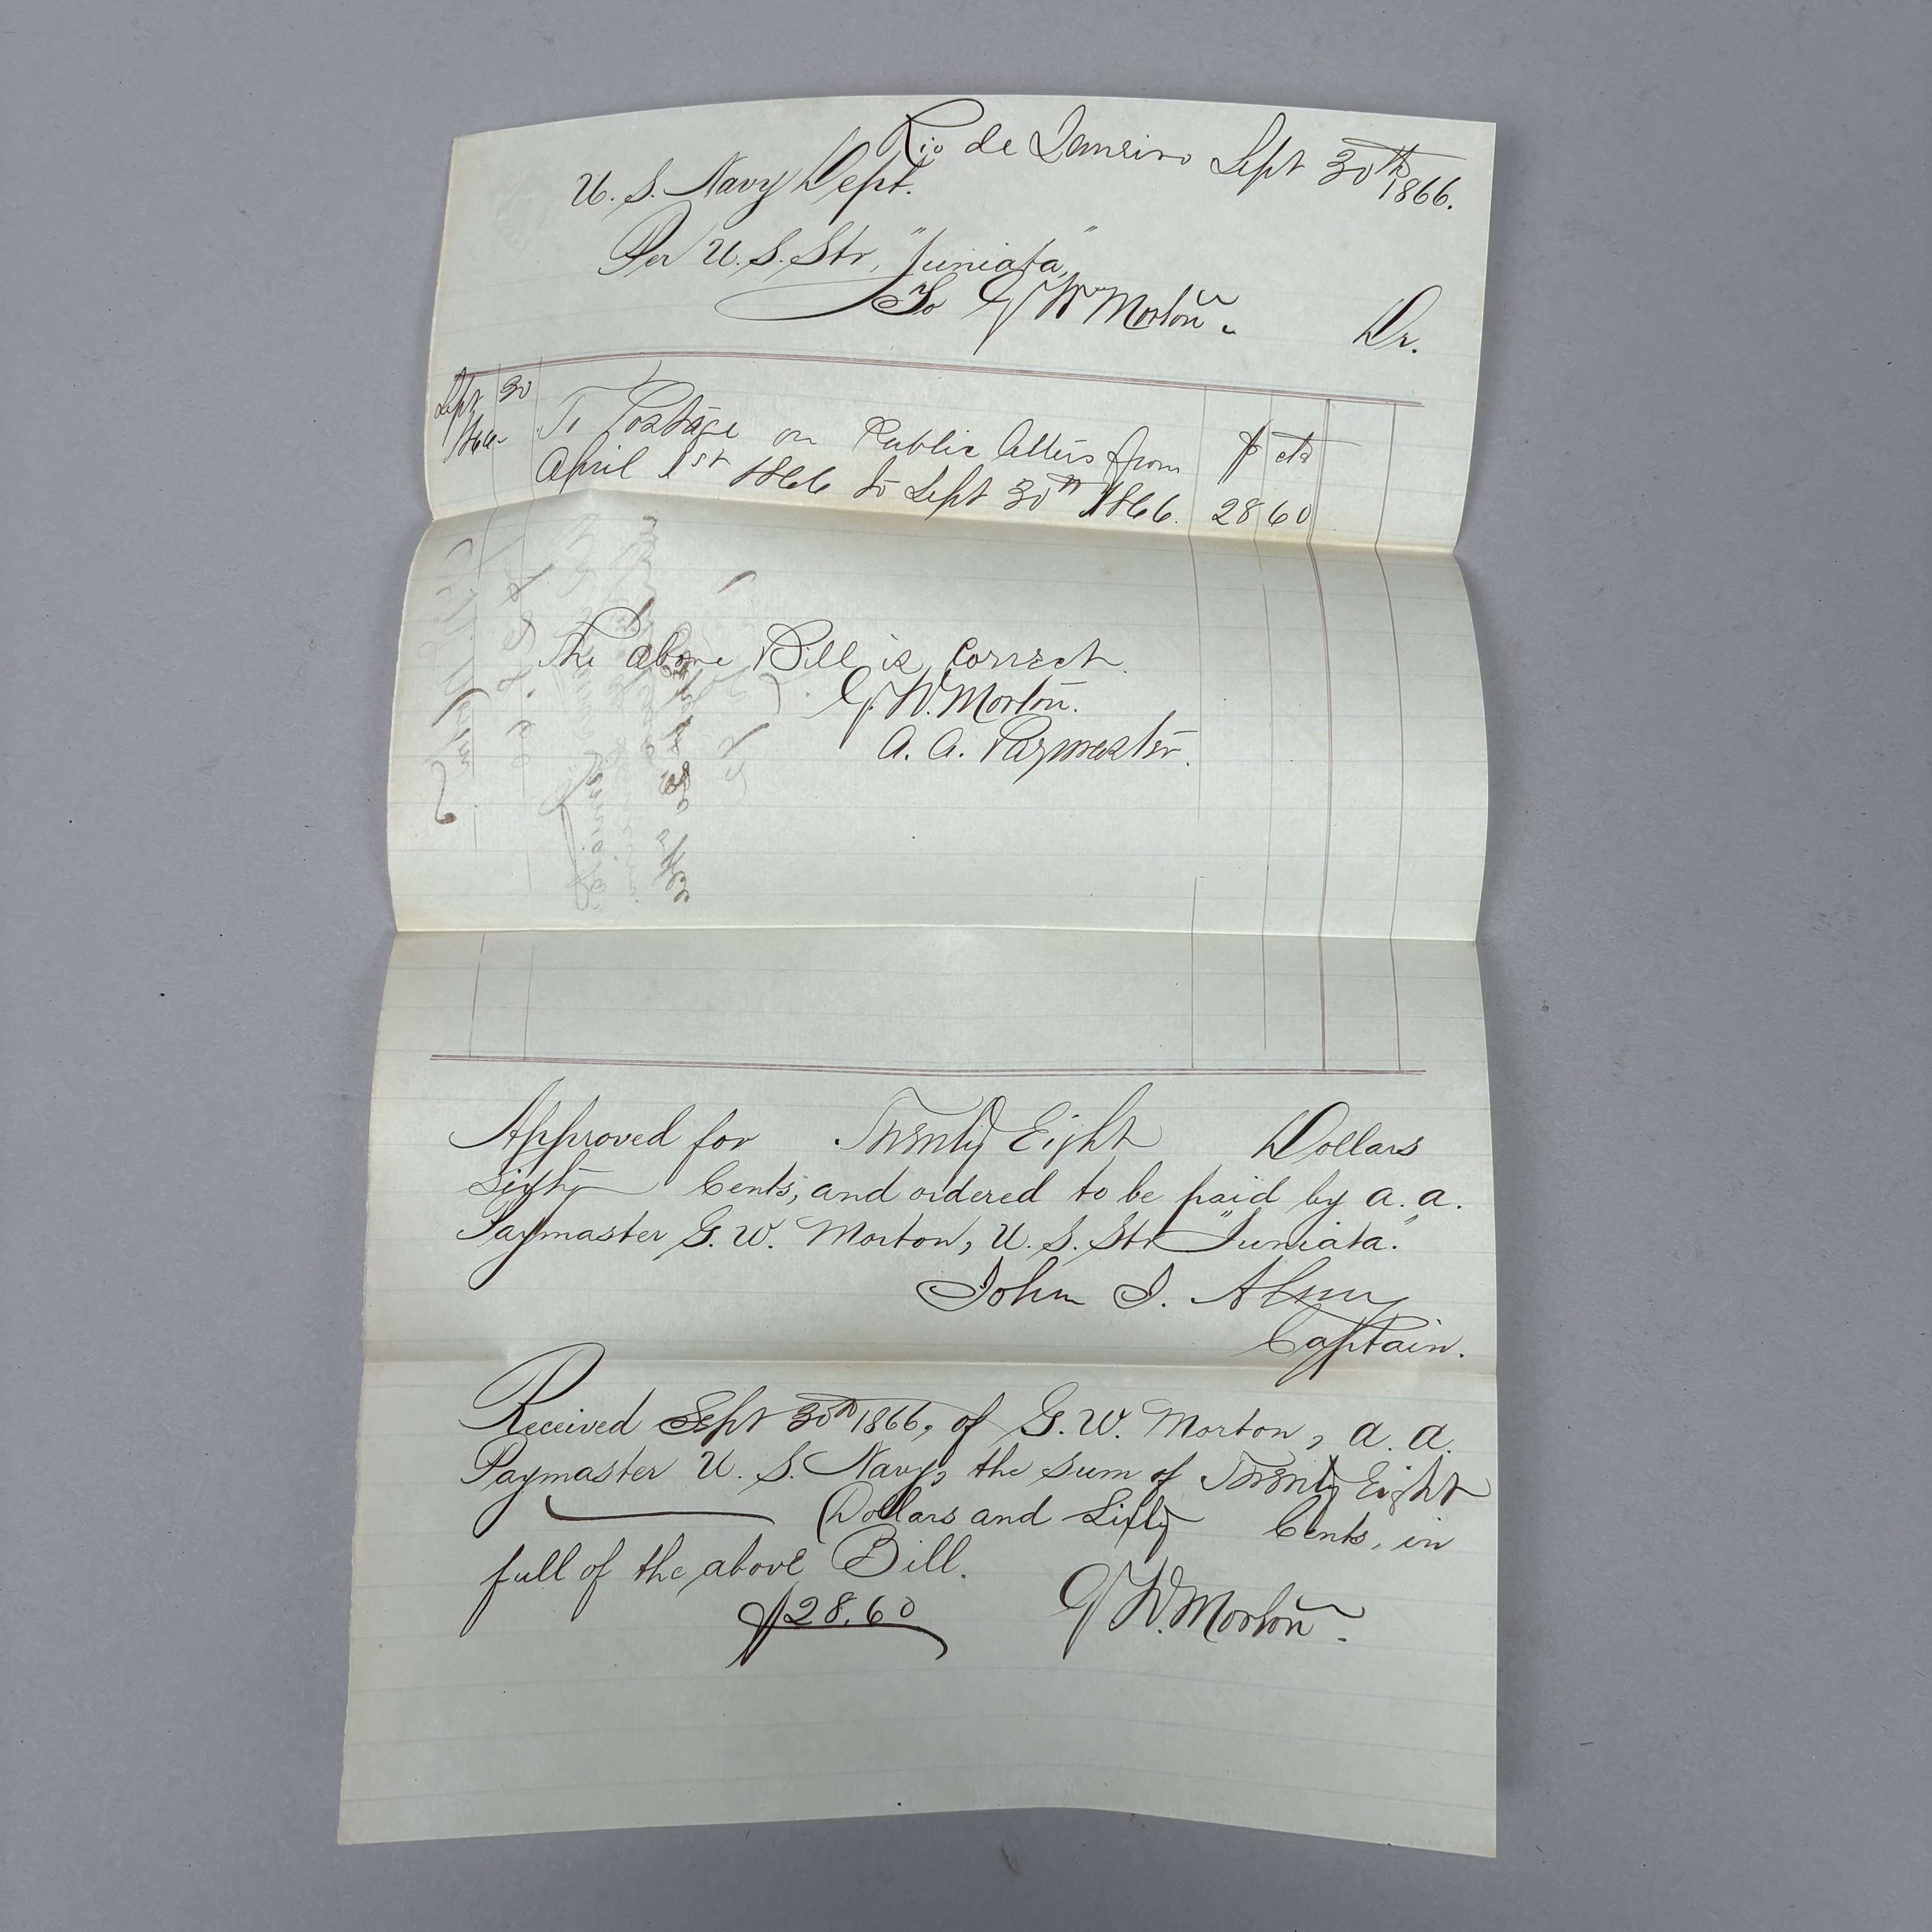 Rio de Janeiro Sept 30th 1866.
U. S. Navy Dept.
Per U. S. Str, "Juniata,"
To G W Morton. Dr.
Sept 30 To Postage on Public letters from $ cts
1866 April 1st 1866 to Sept 30th 1866. 28 60
The above Bill is Correct
G. W. Morton.
A. A. Paymaster.
Approved for Twenty Eight Dollars
Sixty Cents, and ordered to be paid by A. A.
Paymaster G. W. Morton, U. S. Str "Juniata."
John J. Almy
Captain.
Received Sept 30th 1866, of G. W. Morton, A. A.
Paymaster U. S. Navy, the sum of Twenty Eight
Dollars and Sixty Cents, in
full of the above Bill.
$28.60 G W. Morton.